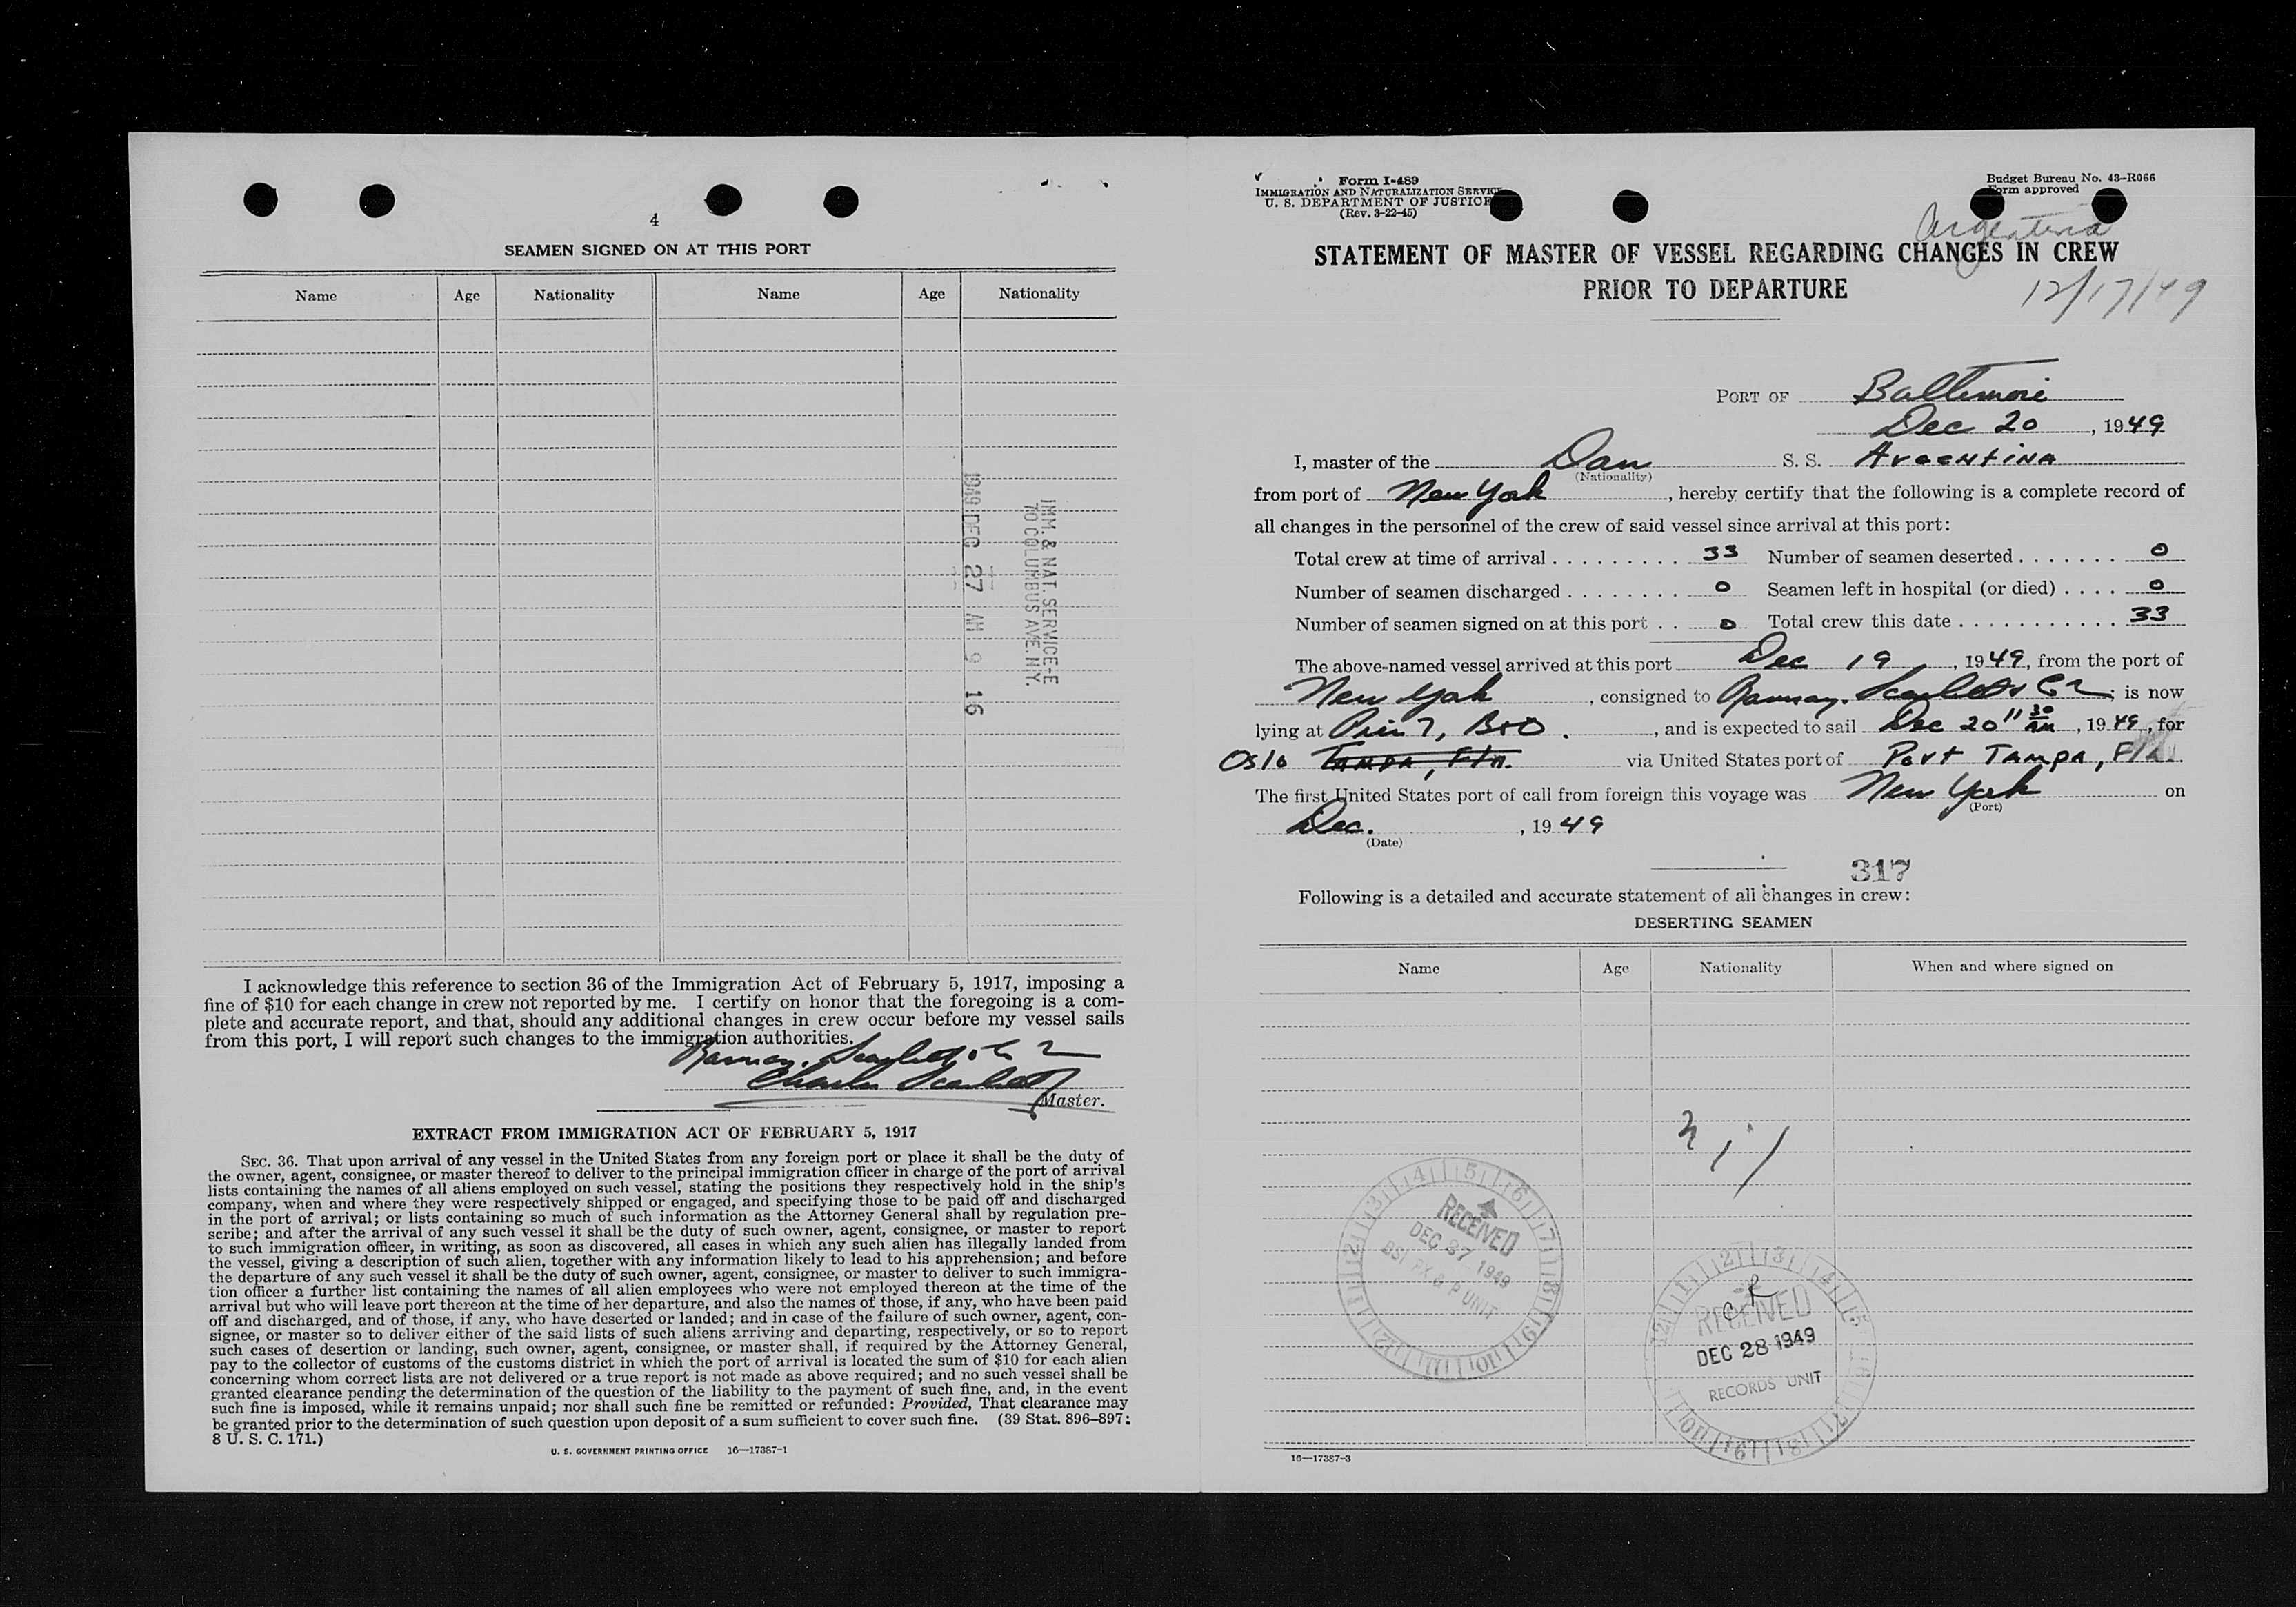 4
SEAMEN SIGNED ON AT THIS PORT
Name Age Nationality Name Age Nationality
IMM. & NAT. SERVICE-E
70 COLUMBUS AVE. N.Y.
1949 DEC 27 AM 9 16
I acknowledge this reference to section 36 of the Immigration Act of February 5, 1917, imposing a
fine of $10 for each change in crew not reported by me. I certify on honor that the foregoing is a com-
plete and accurate report, and that, should any additional changes in crew occur before my vessel sails
from this port, I will report such changes to the immigration authorities.
Charles Scarlett
Master.
EXTRACT FROM IMMIGRATION ACT OF FEBRUARY 5, 1917
SEC. 36. That upon arrival of any vessel in the United States from any foreign port or place it shall be the duty of
the owner, agent, consignee, or master thereof to deliver to the principal immigration officer in charge of the port of arrival
lists containing the names of all aliens employed on such vessel, stating the positions they respectively hold in the ship's
company, when and where they were respectively shipped or engaged, and specifying those to be paid off and discharged
in the port of arrival; or lists containing so much of such information as the Attorney General shall by regulation pre-
scribe; and after the arrival of any such vessel it shall be the duty of such owner, agent, consignee, or master to report
to such immigration officer, in writing, as soon as discovered, all cases in which any such alien has illegally landed from
the vessel, giving a description of such alien, together with any information likely to lead to his apprehension; and before
the departure of any such vessel it shall be the duty of such owner, agent, consignee, or master to deliver to such immigra-
tion officer a further list containing the names of all alien employees who were not employed thereon at the time of the
arrival but who will leave port thereon at the time of her departure, and also the names of those, if any, who have been paid
off and discharged, and of those, if any, who have deserted or landed; and in case of the failure of such owner, agent, con-
signee, or master so to deliver either of the said lists of such aliens arriving and departing, respectively, or so to report
such cases of desertion or landing, such owner, agent, consignee, or master shall, if required by the Attorney General,
pay to the collector of customs of the customs district in which the port of arrival is located the sum of $10 for each alien
concerning whom correct lists are not delivered or a true report is not made as above required; and no such vessel shall be
granted clearance pending the determination of the question of the liability to the payment of such fine, and, in the event
such fine is imposed, while it remains unpaid; nor shall such fine be remitted or refunded: Provided, That clearance may
be granted prior to the determination of such question upon deposit of a sum sufficient to cover such fine. (39 Stat. 896-897;
8 U. S. C. 171.)
U. S. GOVERNMENT PRINTING OFFICE 16—17387-1
Form I-489
IMMIGRATION AND NATURALIZATION SERVICE
U. S. DEPARTMENT OF JUSTICE
(Rev. 3-22-45)
Budget Bureau No. 43-R066
Form approved
Argentina
STATEMENT OF MASTER OF VESSEL REGARDING CHANGES IN CREW
PRIOR TO DEPARTURE
12/17/49
PORT OF Baltimore
Dec 20, 1949
I, master of the Dan S. S. Argentina
(Nationality)
from port of New York, hereby certify that the following is a complete record of
all changes in the personnel of the crew of said vessel since arrival at this port:
Total crew at time of arrival . . . . . . . . . 33 Number of seamen deserted . . . . . . . 0
Number of seamen discharged . . . . . . . . 0 Seamen left in hospital (or died) . . . . 0
Number of seamen signed on at this port . . 0 Total crew this date . . . . . . . . . . . 33
The above-named vessel arrived at this port Dec 19, 1949, from the port of
New York, consigned to Ramsay, Scarlett & Co; is now
lying at Pier 7, B&O., and is expected to sail Dec 20 11 30 AM, 1949, for
Oslo Tampa, Fla. via United States port of Port Tampa, Fla.
The first United States port of call from foreign this voyage was New York on
(Port)
Dec., 1949
(Date)
317
Following is a detailed and accurate statement of all changes in crew:
DESERTING SEAMEN
Name Age Nationality When and where signed on
RECEIVED
DEC 27 1949
UNIT
RECEIVED
DEC 28 1949
RECORDS UNIT
16—17387-3